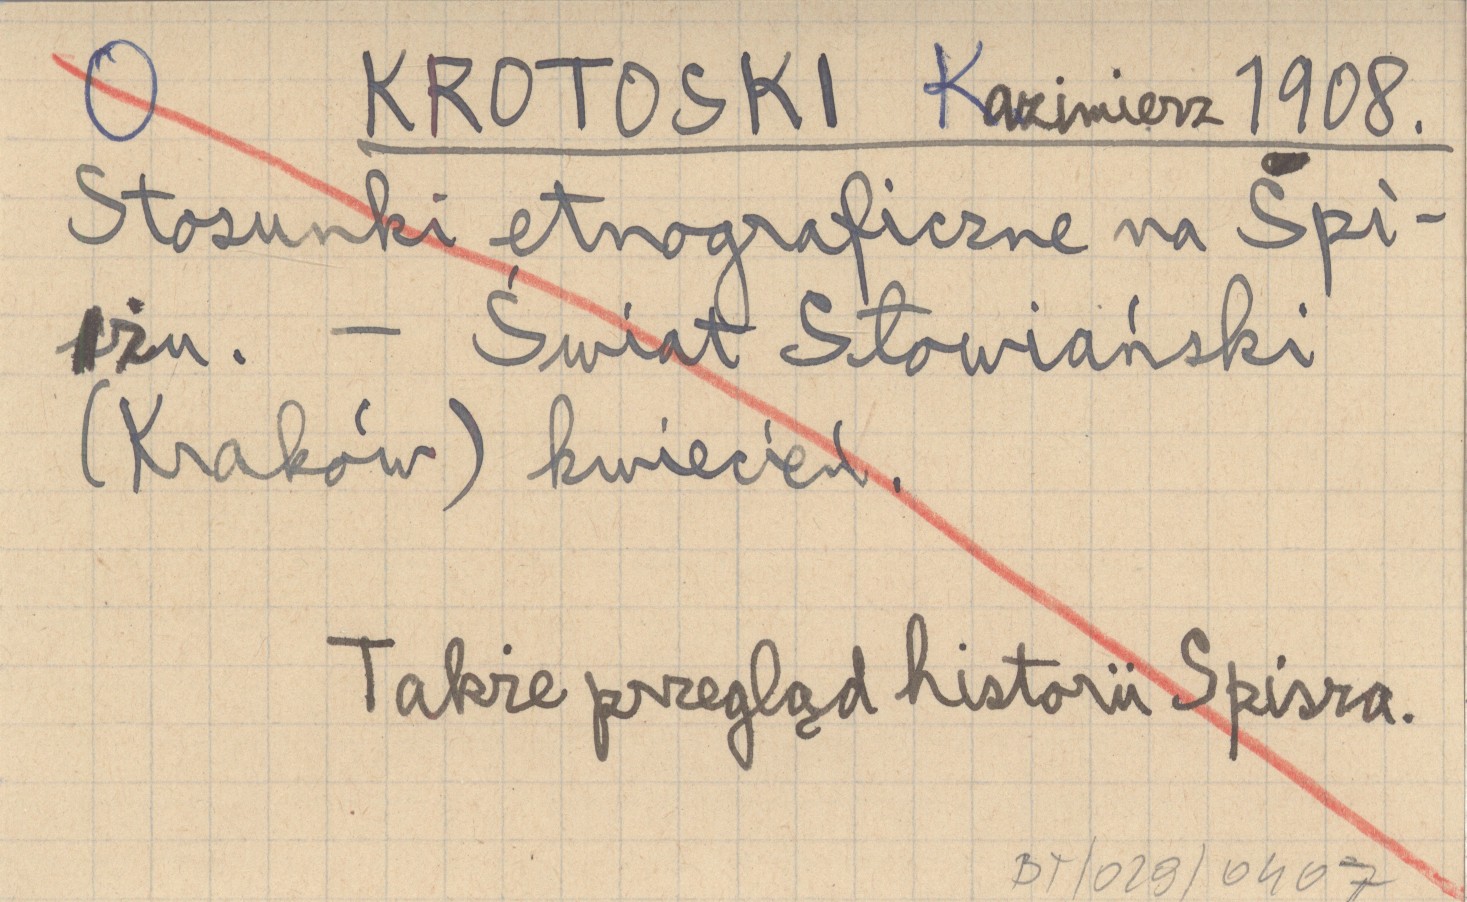 O KROTOSKI Kazimierz 1908.
Stosunki etnograficzne na Spi-
żu. – Świat Słowiański
(Kraków) kwiecień.
Także przegląd historii Spisza.
BT/029/0407